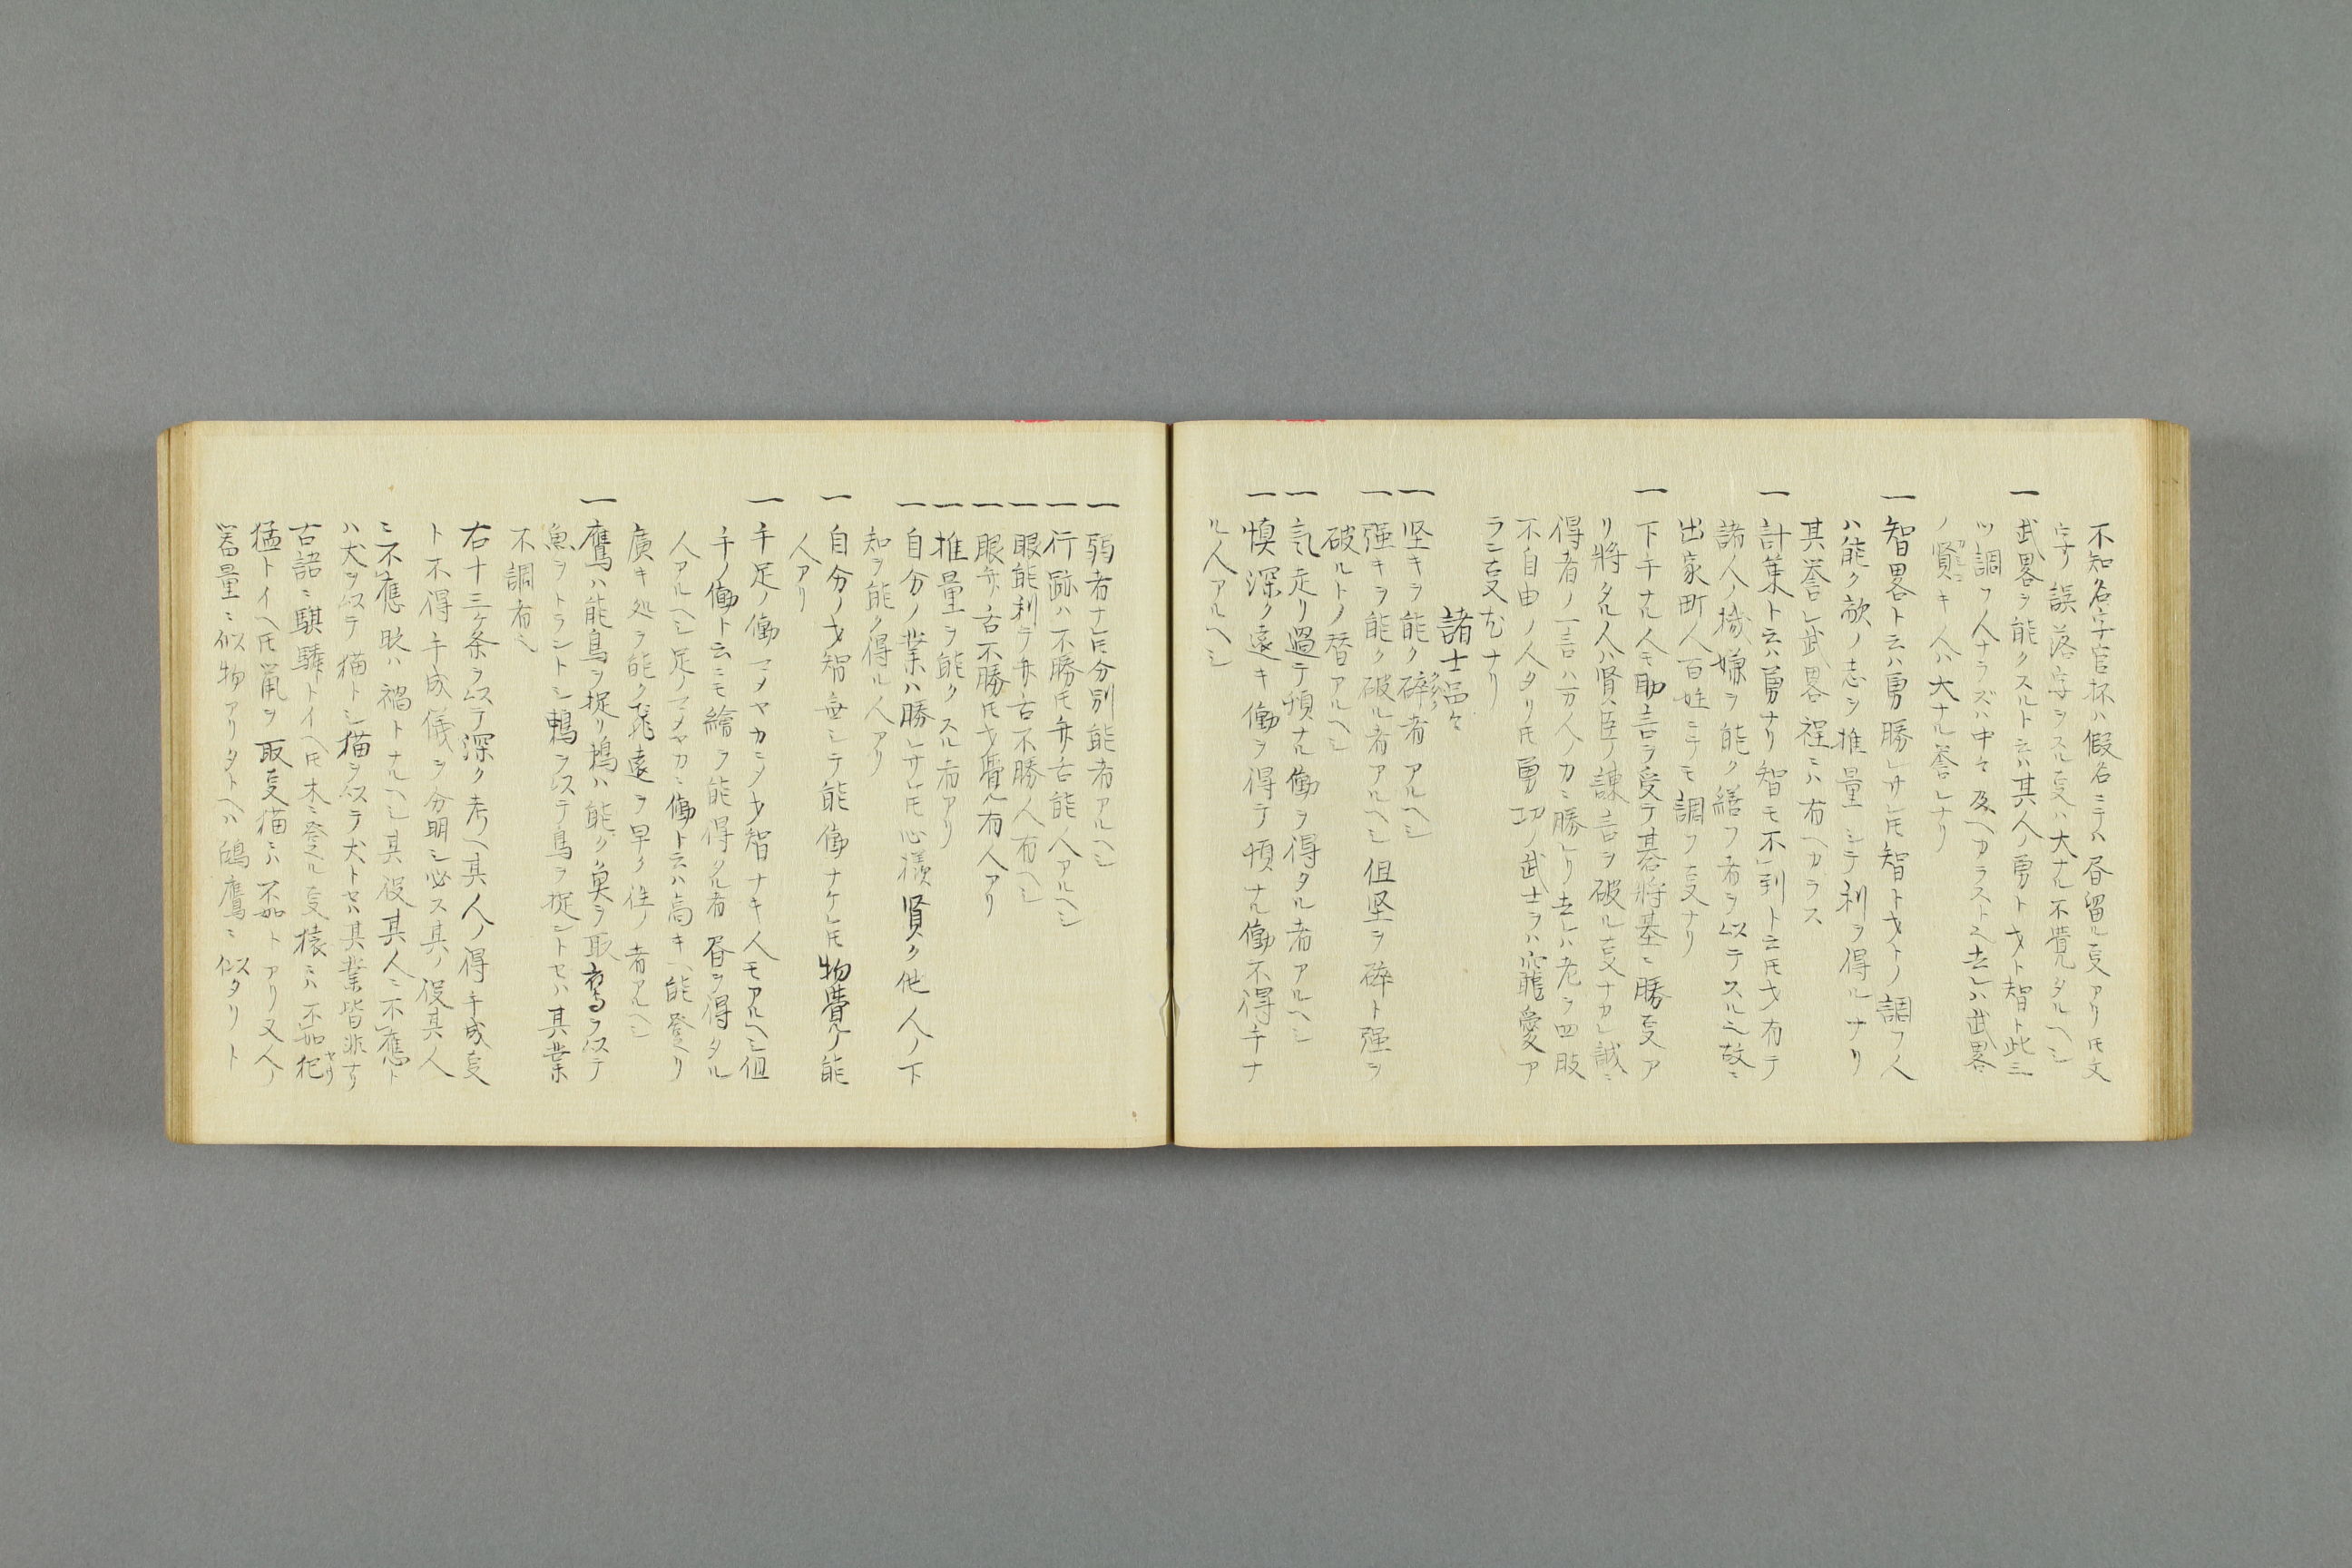 不知名字官抔ハ假名ニテハ昏留ル叓アリ𪜈文
字ノ誤落字ヲスル叓ハ大ナル不覺タルヘシ
一武畧ヲ能クスルト云ハ其人ノ勇ト才ト智ト此三
ツ調フ人ナラズハ中々及ヘカラストミ去レハ武畧
ノ賢キ人ハ大ナル誉レナリ
一智畧ト云ハ勇勝レサレ𪜈智ト才トノ調フ人
ハ能ク敵ノ志ヲ推量シテ利ヲ得ルナリ
其誉レ武畧程ニハ有ヘカラス
一計策ト云ハ勇ナリ智モ不到ト云𪜈才有テ
諸人ノ機嫌ヲ能ク繕フ者ヲ以テスル也故ニ
出家町人百姓ニテモ調フ叓ナリ
一下手ナル人モ助言ヲ受テ碁將基ニ勝叓ア
リ將タル人ハ賢臣ノ諫言ヲ破ル叓ナカレ誠ニ
得者ノ一言ハ万人ノ力ニ勝レリ去レハ老ヲ四肢
不自由ノ人タリ𪜈勇功ノ武士ヲハ寵愛ア
ラン叓尤ナリ
諸士品々
一坚キヲ能ク碎者アルヘシ
一强キヲ能ク破ル者アルヘシ但坚ヲ碎ト强ヲ
破ルトノ替アルヘシ
一氣走リ過テ頓ナル働ヲ得タル者アルヘシ
一慎深ク遠キ働ヲ得テ頓ナル働不得手ナ
ル人アルヘシ
一弱者ナレ𪜈分別能者アルヘシ
一行跡ハ不勝𪜈弁舌能人アルヘシ
一眼能利テ弁舌不勝人有ヘシ
一眼弁舌不勝𪜈才覺有人アリ
一推量ヲ能クスル者アリ
一自分ノ業ハ勝レサレ𪜈心様賢ク他人ノ下
知ヲ能ク得ル人アリ
一自分ノ才智無シテ能働ナケレ𪜈物覺ノ能
人アリ
一手足ノ働マメヤカニメ才智ナキ人モアルヘシ但
手ノ働ト云ニモ繪ヲ能得タル者昏ヲ得タル
人アルヘシ足ノマメヤカニ働ト云ハ高キヘ能登リ
廣キ処ヲ能ク飛遠ヲ早ク徃ノ者アルヘシ
一鷹ハ能鳥ヲ捉リ鵜ハ能ク奥ヲ取鷹ヲ以テ
魚ヲトラントシ鵜ヲ以テ鳥ヲ捉ントセハ其業
不調者也
右十三ケ条ヲ以テ深ク考ヘ其人ノ得手成叓
ト不得手成儀ヲ分明シ必ス其ノ役其人
ニ不應昿ハ禍トナルヘシ其役其人ニ不應ト
ハ犬ヲ以テ猫トシ猫ヲ以テ犬トセハ其業皆非ナリ
古語ニ騏驎トイヘ𪜈木ニ登ル叓猿ニハ不如
猛トイヘ𪜈鼠ヲ取叓猫ニハ不如トアリ又人ノ
器量ニ似物アリタトヘハ鴟鷹ニ似タリト